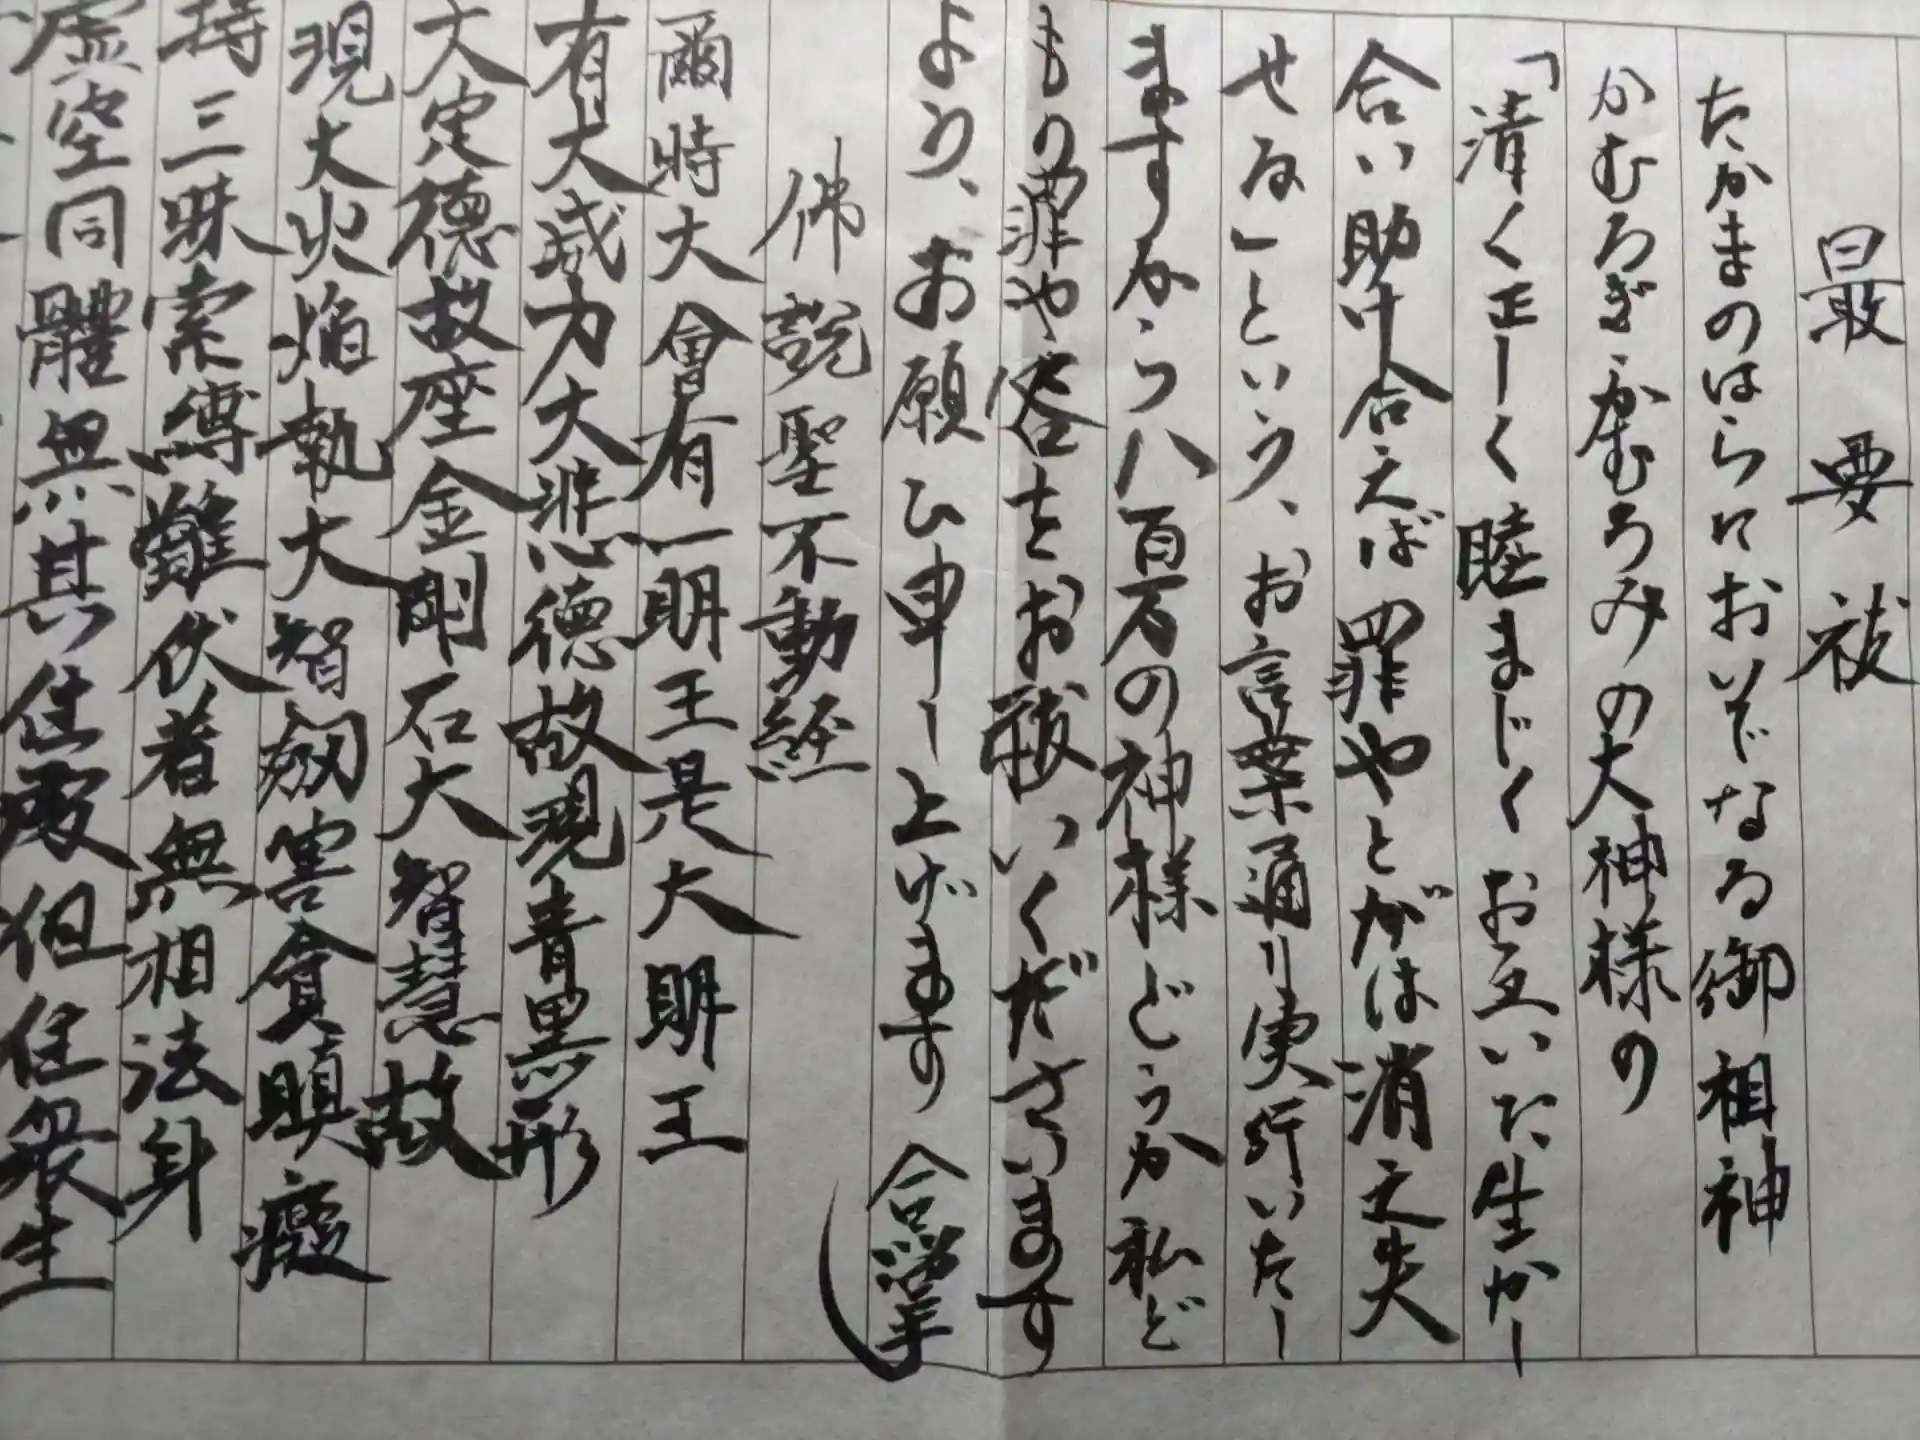 最要祓
たかまのはらにおいでなる御祖神
かむろぎ・かむろみの大神様の
「清く正しく睦まじくお互いに生かし
合い助け合えば罪やとがは消え失
せる」という、お言葉通り実行いたし
ますから八百万の神様どうか私ど
もの罪や咎をお祓いくださいます
よう、お願ひ申し上げます 合掌
佛説聖不動経
爾時大會有一明王是大明王
有大威力大悲徳故現青黒形
大定徳故座金剛石大智慧故
現大火焔執大智剱害貪瞋癡
持三昧索縛難伏者無相法身
虚空同體無其住處但住衆生